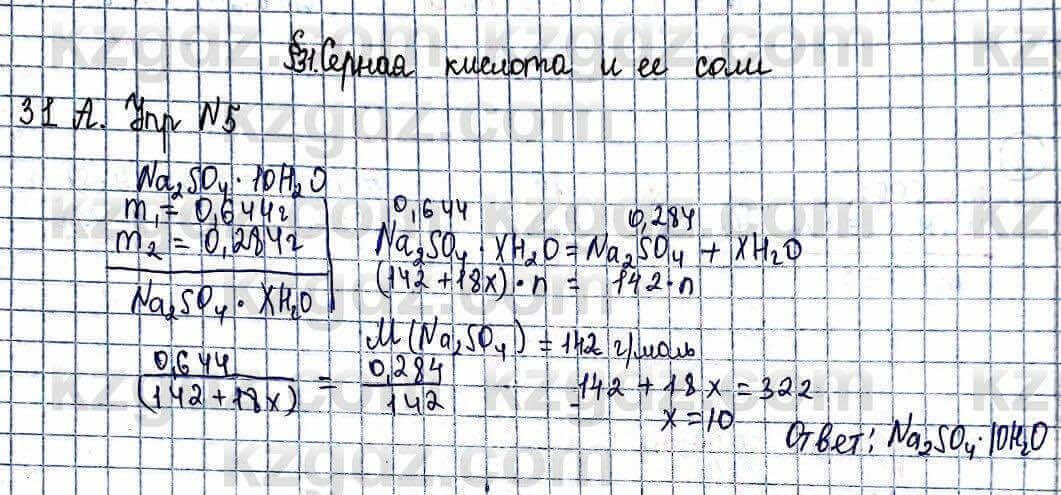 §31. Серная кислота и ее соли
31 А. Упр N5
Na₂SO₄·10H₂O
m₁ = 0,644г
m₂ = 0,284г
Na₂SO₄·XH₂O
0,644 0,284
Na₂SO₄·XH₂O = Na₂SO₄ + XH₂O
(142+18x)·n = 142·n
M(Na₂SO₄) = 142 г/моль
0,644/(142+18x) = 0,284/142
142+18x=322
x=10
Ответ: Na₂SO₄·10H₂O
kzgdz.com